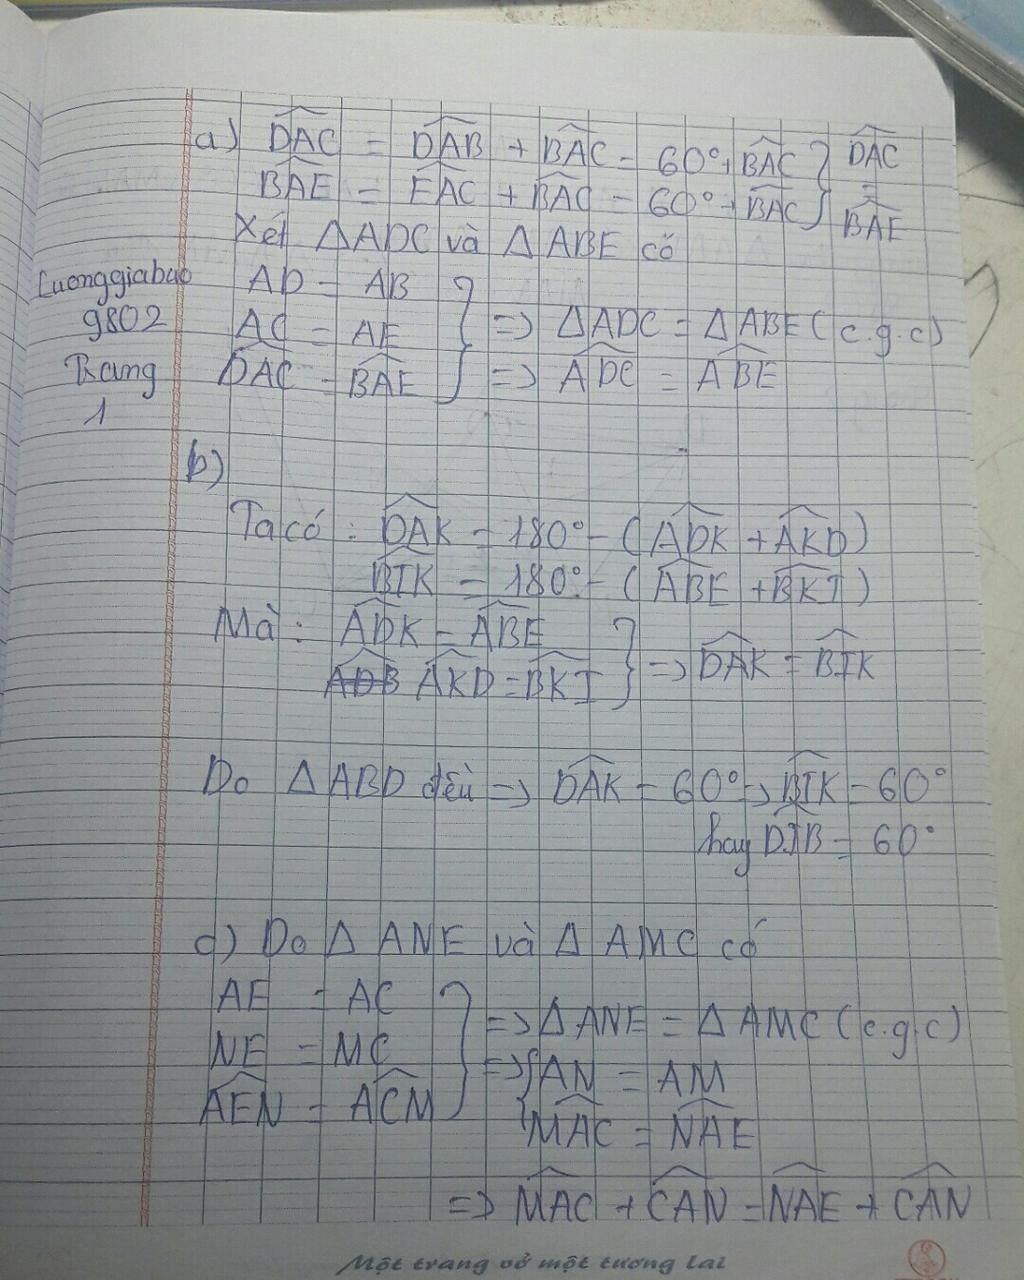 a) DAC = DAB + BAC = 60° + BAC } DAC
BAE = EAC + BAC = 60° + BAC } = BAE
Xét ΔADC và ΔABE có
Luonggiabao
9802
Trang
1
AD = AB
AC = AE } => ΔADC = ΔABE (c.g.c)
DAC = BAE } => ADC = ABE
b)
Ta có : DAK = 180° - (ADK + AKD)
BIK = 180° - (ABE + BKI)
Mà : ADK = ABE
ADB AKD = BKI } => DAK = BIK
Do ΔABD đều => DAK = 60° => BIK = 60°
hay DIB = 60°
c) Do Δ ANE và Δ AMC có
AE = AC
NE = MC } => Δ ANE = Δ AMC (c.g.c)
=> { AN = AM
AEN = ACM
MAC = NAE
=> MAC + CAN = NAE + CAN
Một trang vở một tương lai